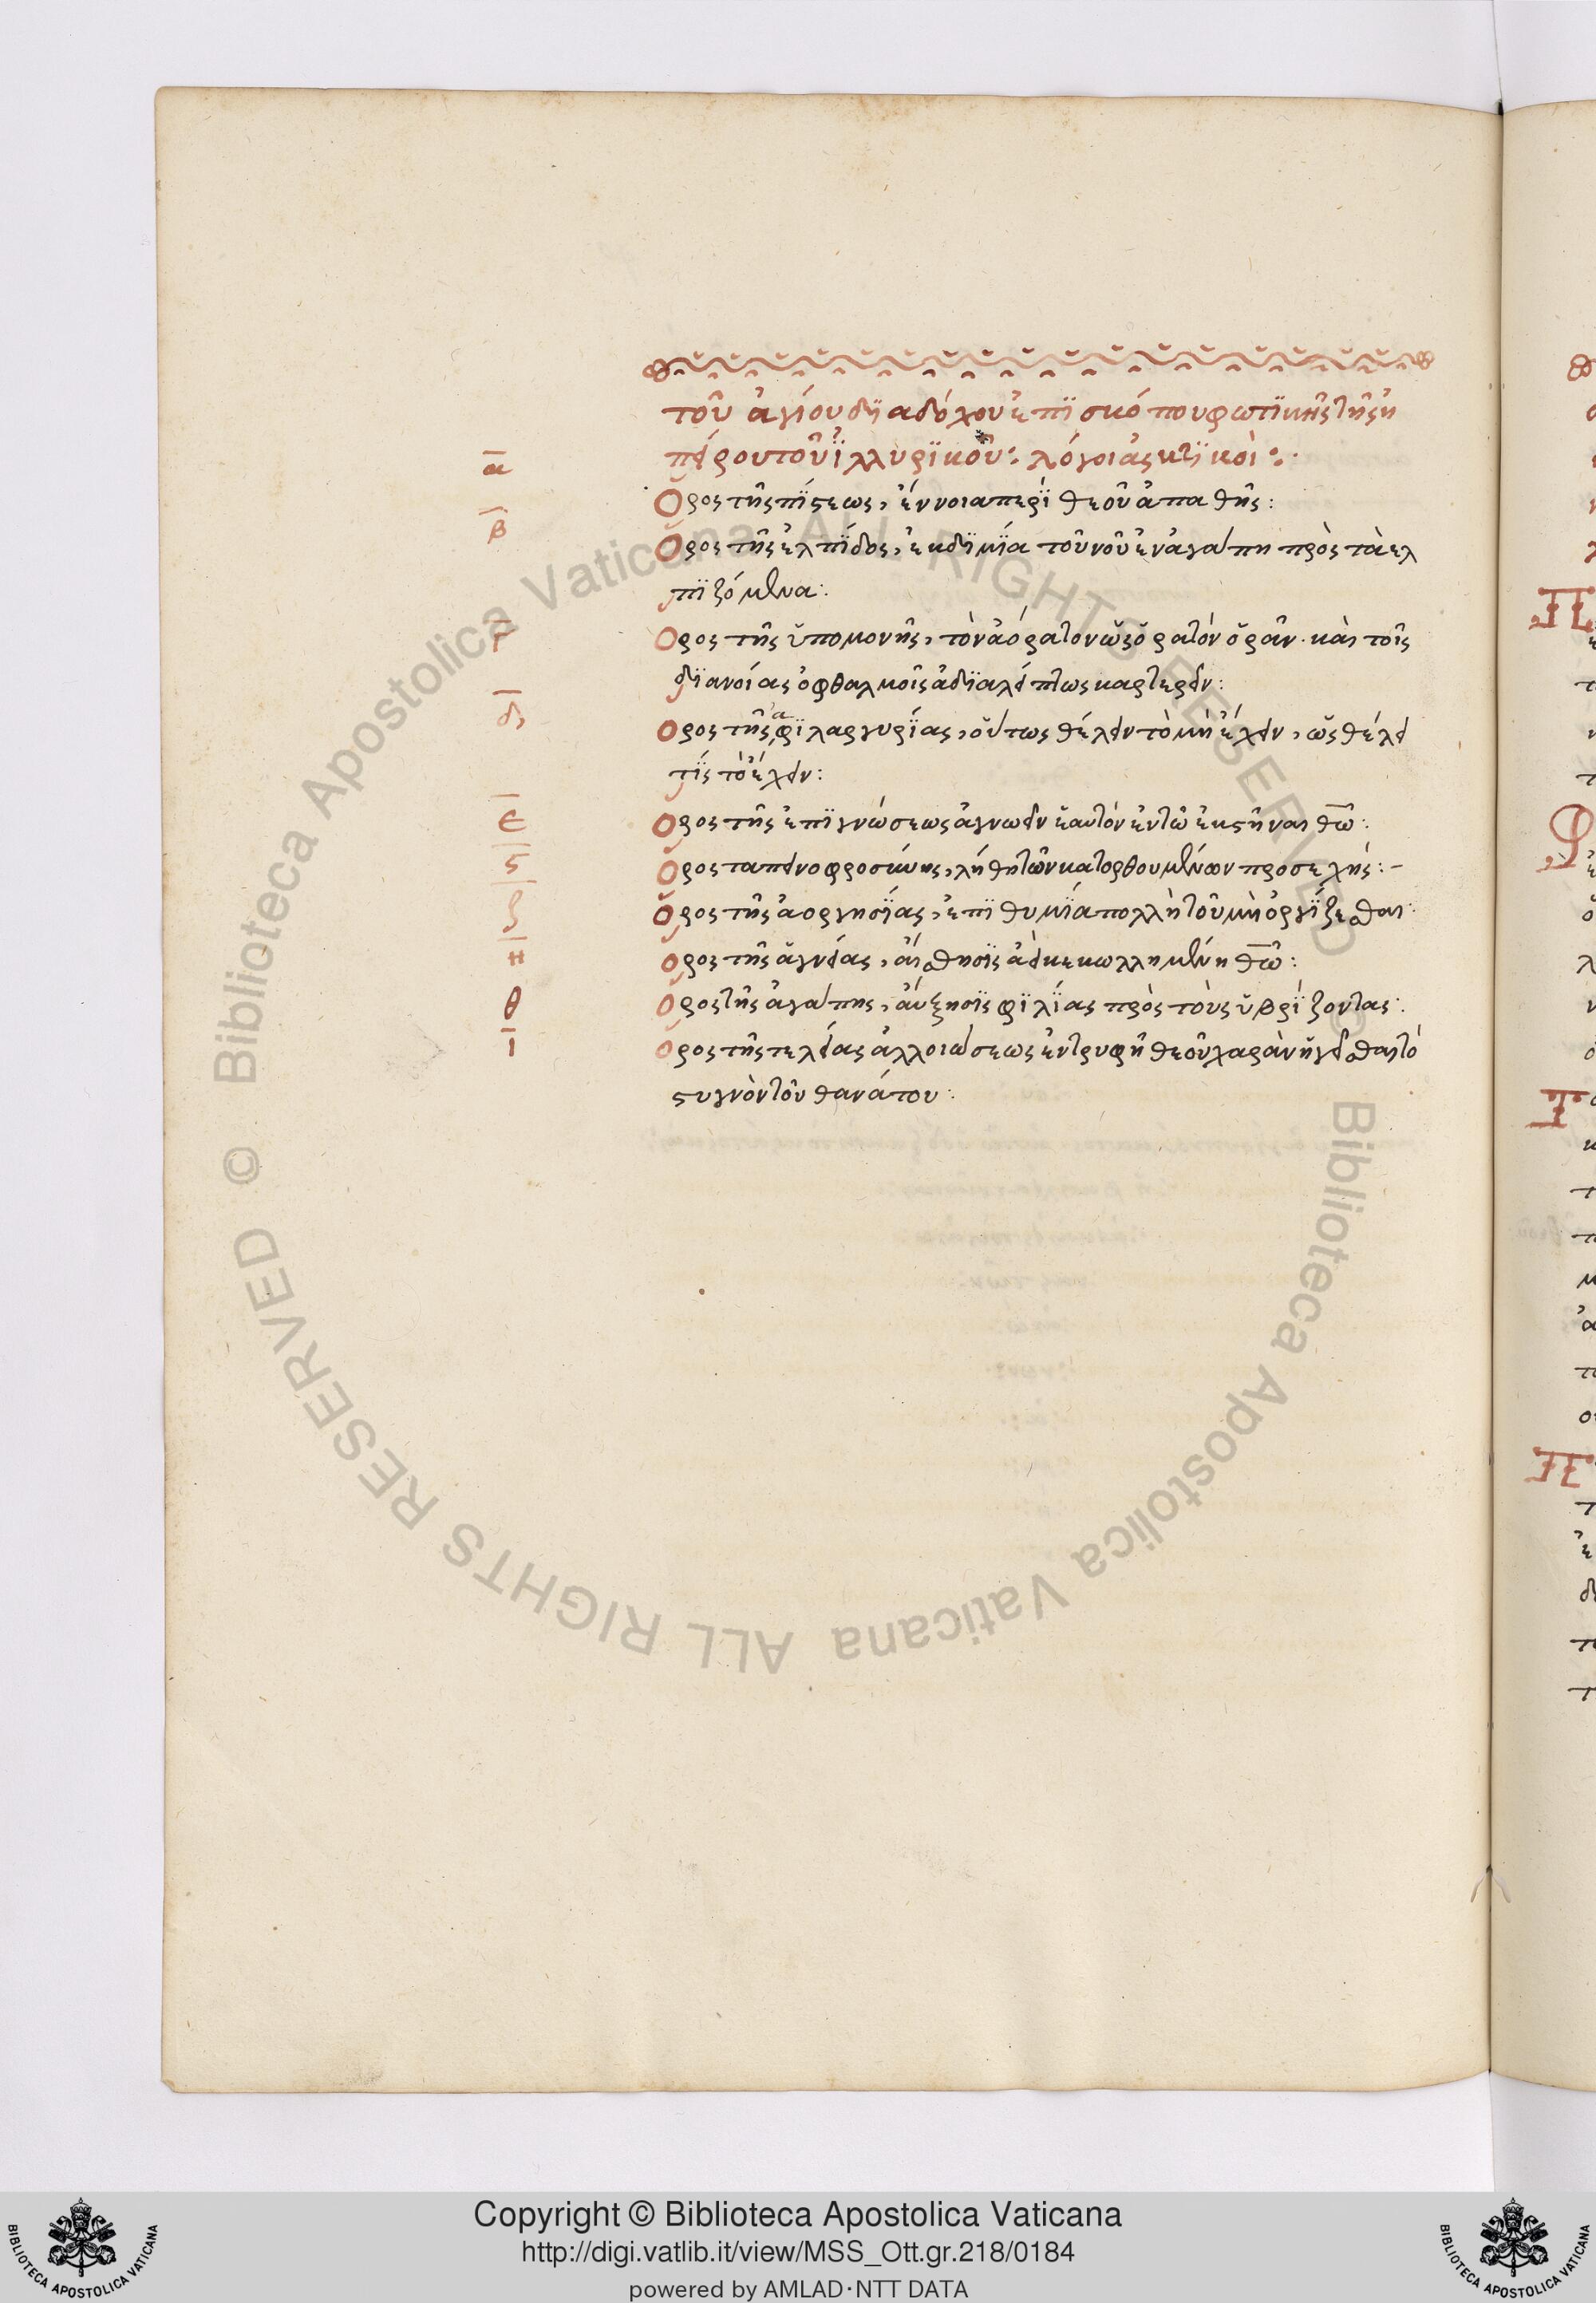 τοῦ ἁγίου διαδόχου ἐπισκόπου φωτικῆς τῆς ἠ
πείρου τοῦ ἰλλυρικοῦ: λόγοι ἀσκητικοὶ:
α
Ορος τῆς πίστεως, ἔννοια περὶ θεοῦ ἀπαθῆς:
β
Ορος τῆς ἐλπίδος, ἐκδημία τοῦ νοῦ ἐν ἀγάπη πρὸς τὰ ελ
πιζόμενα:
γ
Ορος τῆς ὑπομονῆς, τὸν ἀόρατον ὡς ὁρατόν ὁρᾶν. καὶ τοῖς
διανοίας ὀφθαλμοῖς ἀδιαλείπτως καρτερεῖν:
δ
Ορος τῆς ἀφιλαργυρίας, οὕτως θέλειν τὸ μὴ ἔχειν, ὡς θέλει
τίς τὸ ἔχειν:
ε
Ορος τῆς ἐπιγνώσεως ἀγνοεῖν ἑαυτόν ἐν τῶ ἐκστῆναι θῶ:
ς
Ορος ταπεινοφροσύνης, λήθη τῶν κατορθουμένων προσεχής:-
ζ
Ορος τῆς ἀοργησίας, ἐπιθυμία πολλὴ τοῦ μὴ ὀργίζεσθαι:
η
Ορος τῆς ἁγνείας, αἴσθησις ἀεὶ κεκολλημένη θῶ:
θ
Ορος τῆς ἀγάπης, αὔξησις φιλίας πρὸς τοὺς ὑβρίζοντας:
ι
Ορος τῆς τελείας ἀλλοιώσεως ἐν τρυφῇ θεοῦ χαρὰν ἡγεῖσθαι τὸ
στυγνὸν τοῦ θανάτου:
Copyright © Biblioteca Apostolica Vaticana
http://digi.vatlib.it/view/MSS_Ott.gr.218/0184
powered by AMLAD·NTT DATA
© Biblioteca Apostolica Vaticana ALL RIGHTS RESERVED
© Biblioteca Apostolica Vaticana ALL RIGHTS RESERVED
BIBLIOTECA APOSTOLICA VATICANA
BIBLIOTECA APOSTOLICA VATICANA